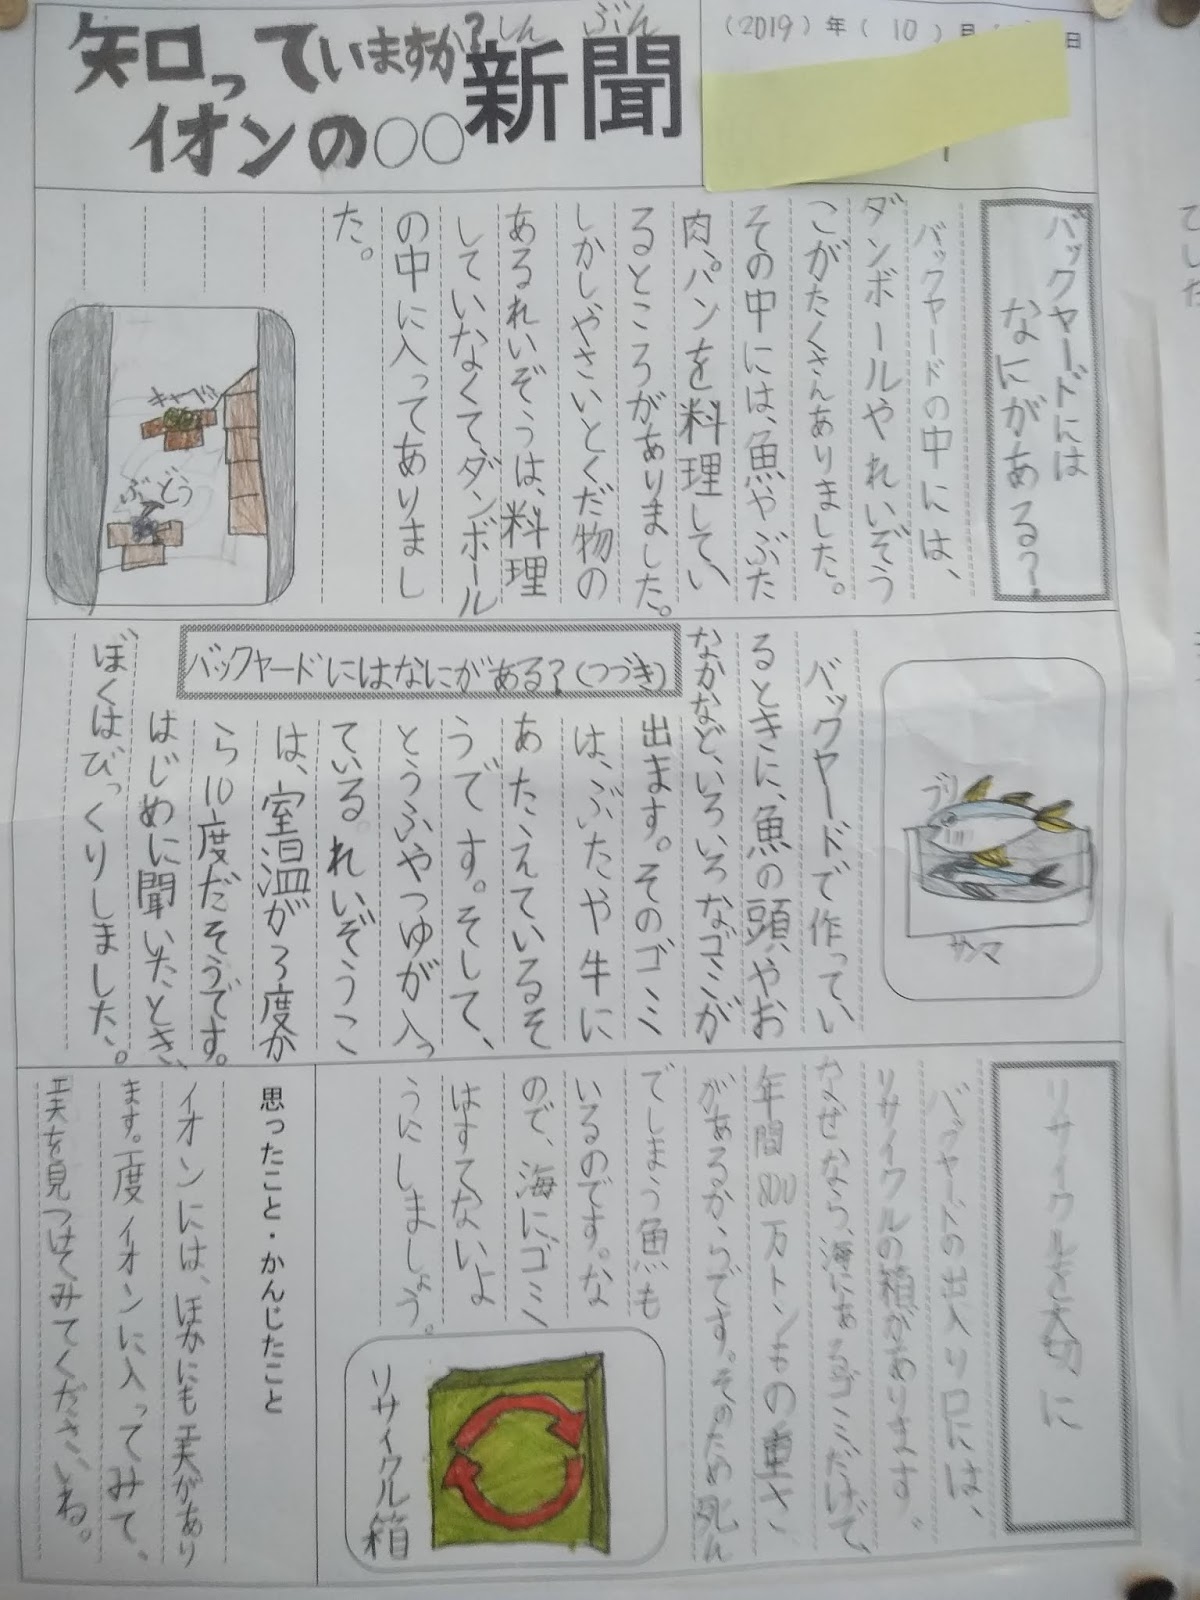 知っていますか?
イオンの○○
しんぶん
新聞
(2019)年(10)月
日
バックヤードには
なにがある?
バックヤードの中には、
ダンボールやれいぞう
こがたくさんありました。
その中には、魚やぶた
肉、パンを料理してい
るところがありました。
しかしやさいとくだ物の
あるれいぞうは、料理
していなくてダンボール
の中に入ってありまし
た。
キャベツ
ぶどう
ブリ
サンマ
バックヤードで作ってい
るときに、魚の頭やお
なかなど、いろいろなゴミが
バックヤードにはなにがある?(つづき)
出ます。そのゴミ
は、ぶたや牛に
あたえているそ
うです。そして、
とうふやつゆが入っ
ている。れいぞうこ
は、室温が3度か
ら10度だそうです。
はじめに聞いたとき、
ぼくはびっくりしました。
リサイクルを大切に
バックヤードの出入り口には、
リサイクルの箱があります。
なぜなら、海にあるゴミだけで、
年間800万トンもの重さ
があるからです。そのため死ん
でしまう魚も
いるのです。な
ので、海にゴミ
はすてないよ
うにしましょう。
リサイクル箱
思ったこと・かんじたこと
イオンには、ほかにも工夫があり
ます。一度イオンに入ってみて、
工夫を見つけてみてくださいね。